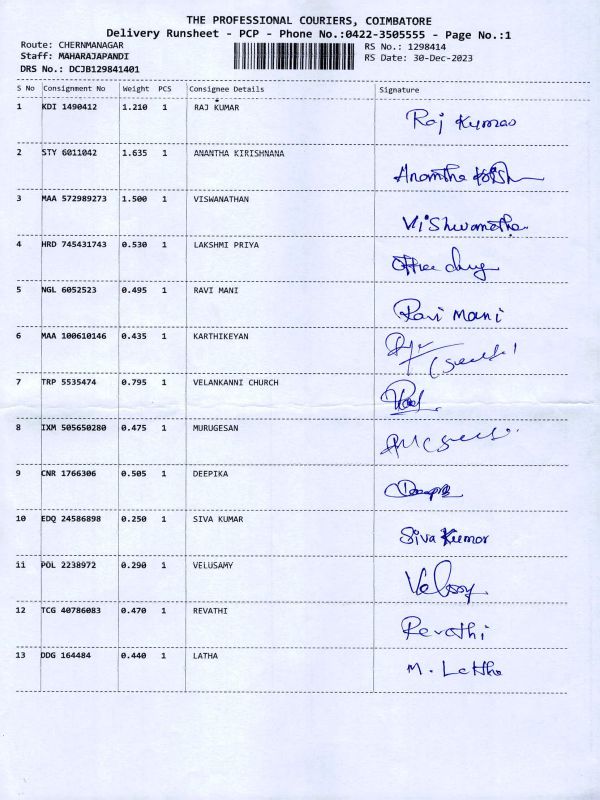 THE PROFESSIONAL COURIERS, COIMBATORE
Delivery Runsheet - PCP - Phone No.:0422-3505555 - Page No.:1
Route: CHERNMANAGAR RS No.: 1298414
Staff: MAHARAJAPANDI RS Date: 30-Dec-2023
DRS No.: DCJB129841401
S No Consignment No Weight PCS Consignee Details Signature
1 KDI 1490412 1.210 1 RAJ KUMAR
Raj Kumar
2 STY 6011042 1.635 1 ANANTHA KIRISHNANA
Anantha
3 MAA 572989273 1.500 1 VISWANATHAN
Vishwanathan
4 HRD 745431743 0.530 1 LAKSHMI PRIYA
5 NGL 6052523 0.495 1 RAVI MANI
Ravi Mani
6 MAA 100610146 0.435 1 KARTHIKEYAN
7 TRP 5535474 0.795 1 VELANKANNI CHURCH
8 IXM 505650280 0.475 1 MURUGESAN
9 CNR 1766306 0.505 1 DEEPIKA
10 EDQ 24586898 0.250 1 SIVA KUMAR
Siva Kumar
11 POL 2238972 0.290 1 VELUSAMY
12 TCG 40786083 0.470 1 REVATHI
Revathi
13 DDG 164484 0.440 1 LATHA
M. Latha